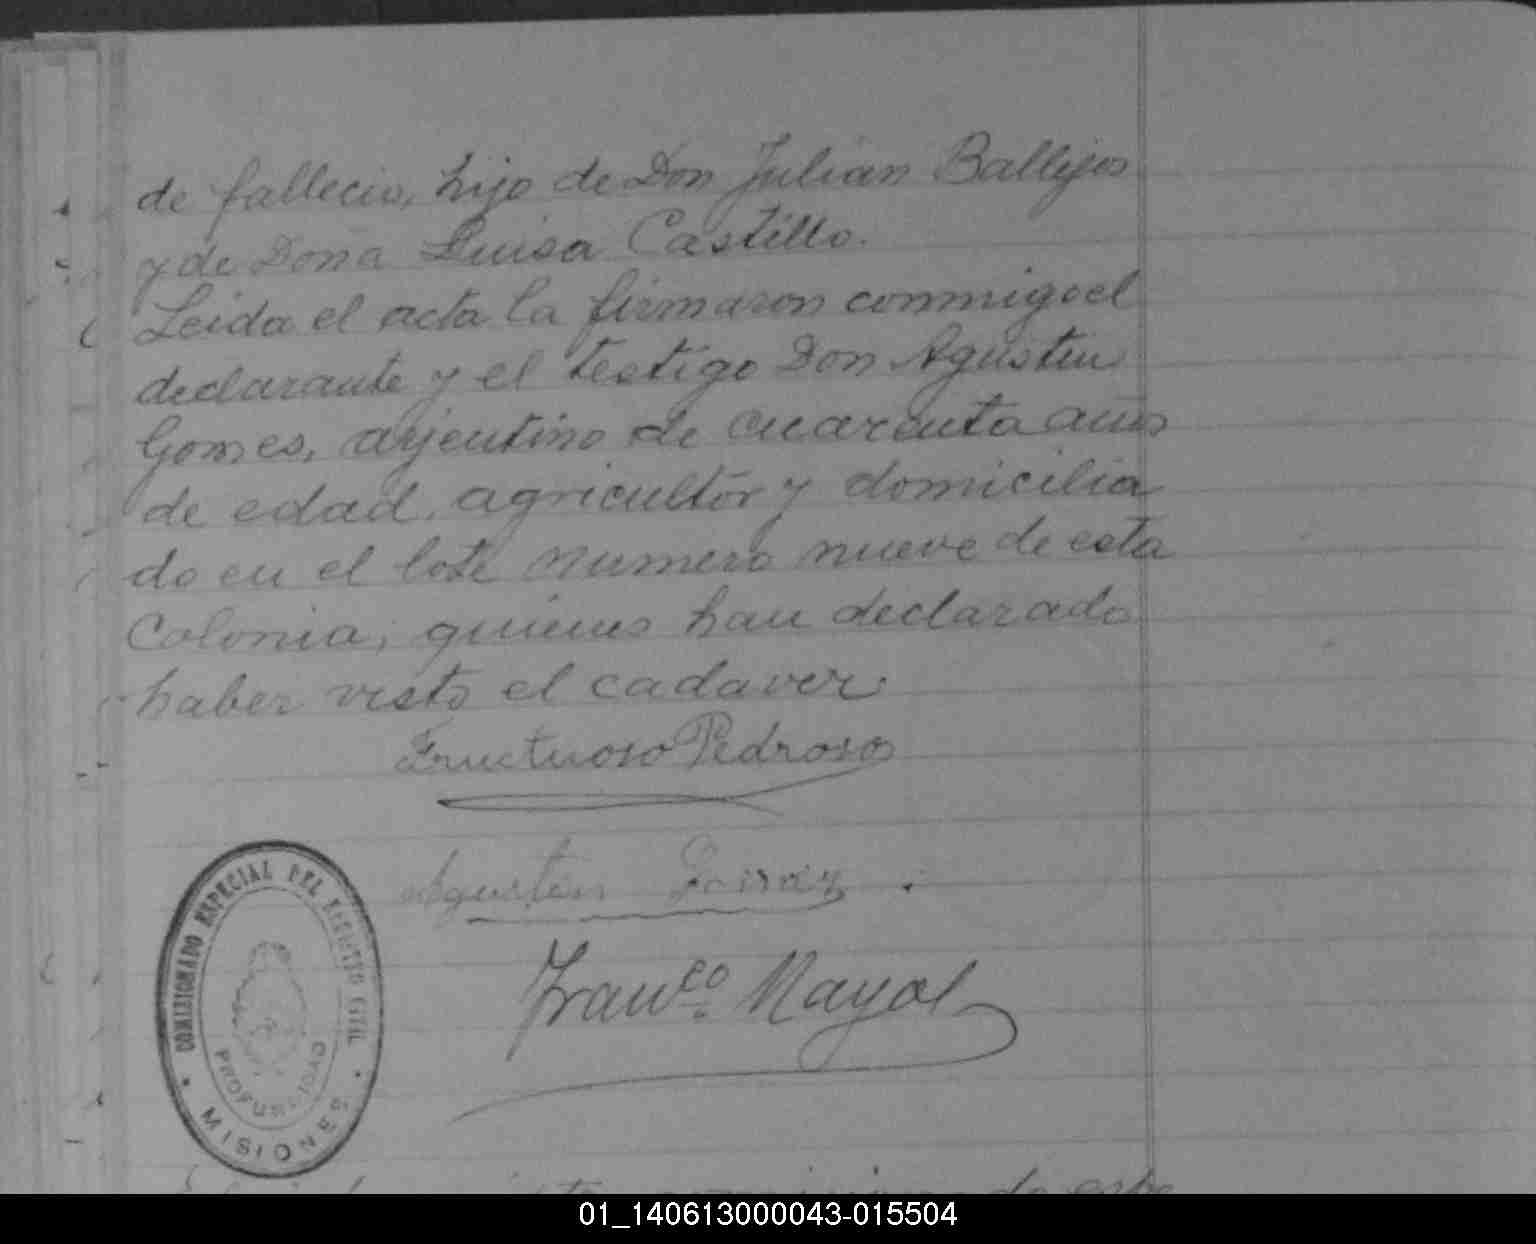 de fallecio, hijo de Don Julian Ballejos
y de Doña Luisa Castillo.
Leida el acta la firmaron conmigo el
declarante y el testigo Don Agustin
Gomes, arjentino de cuarenta años
de edad, agricultor y domicilia
do en el lote numero nueve de esta
Colonia, quienes han declarado
haber visto el cadaver
Fructuoso Pedroso
Agustin
Franco. Mayol
COMISIONADO ESPECIAL DEL REGISTRO CIVIL
PROFUNDIDAD
MISIONES
01_140613000043-015504